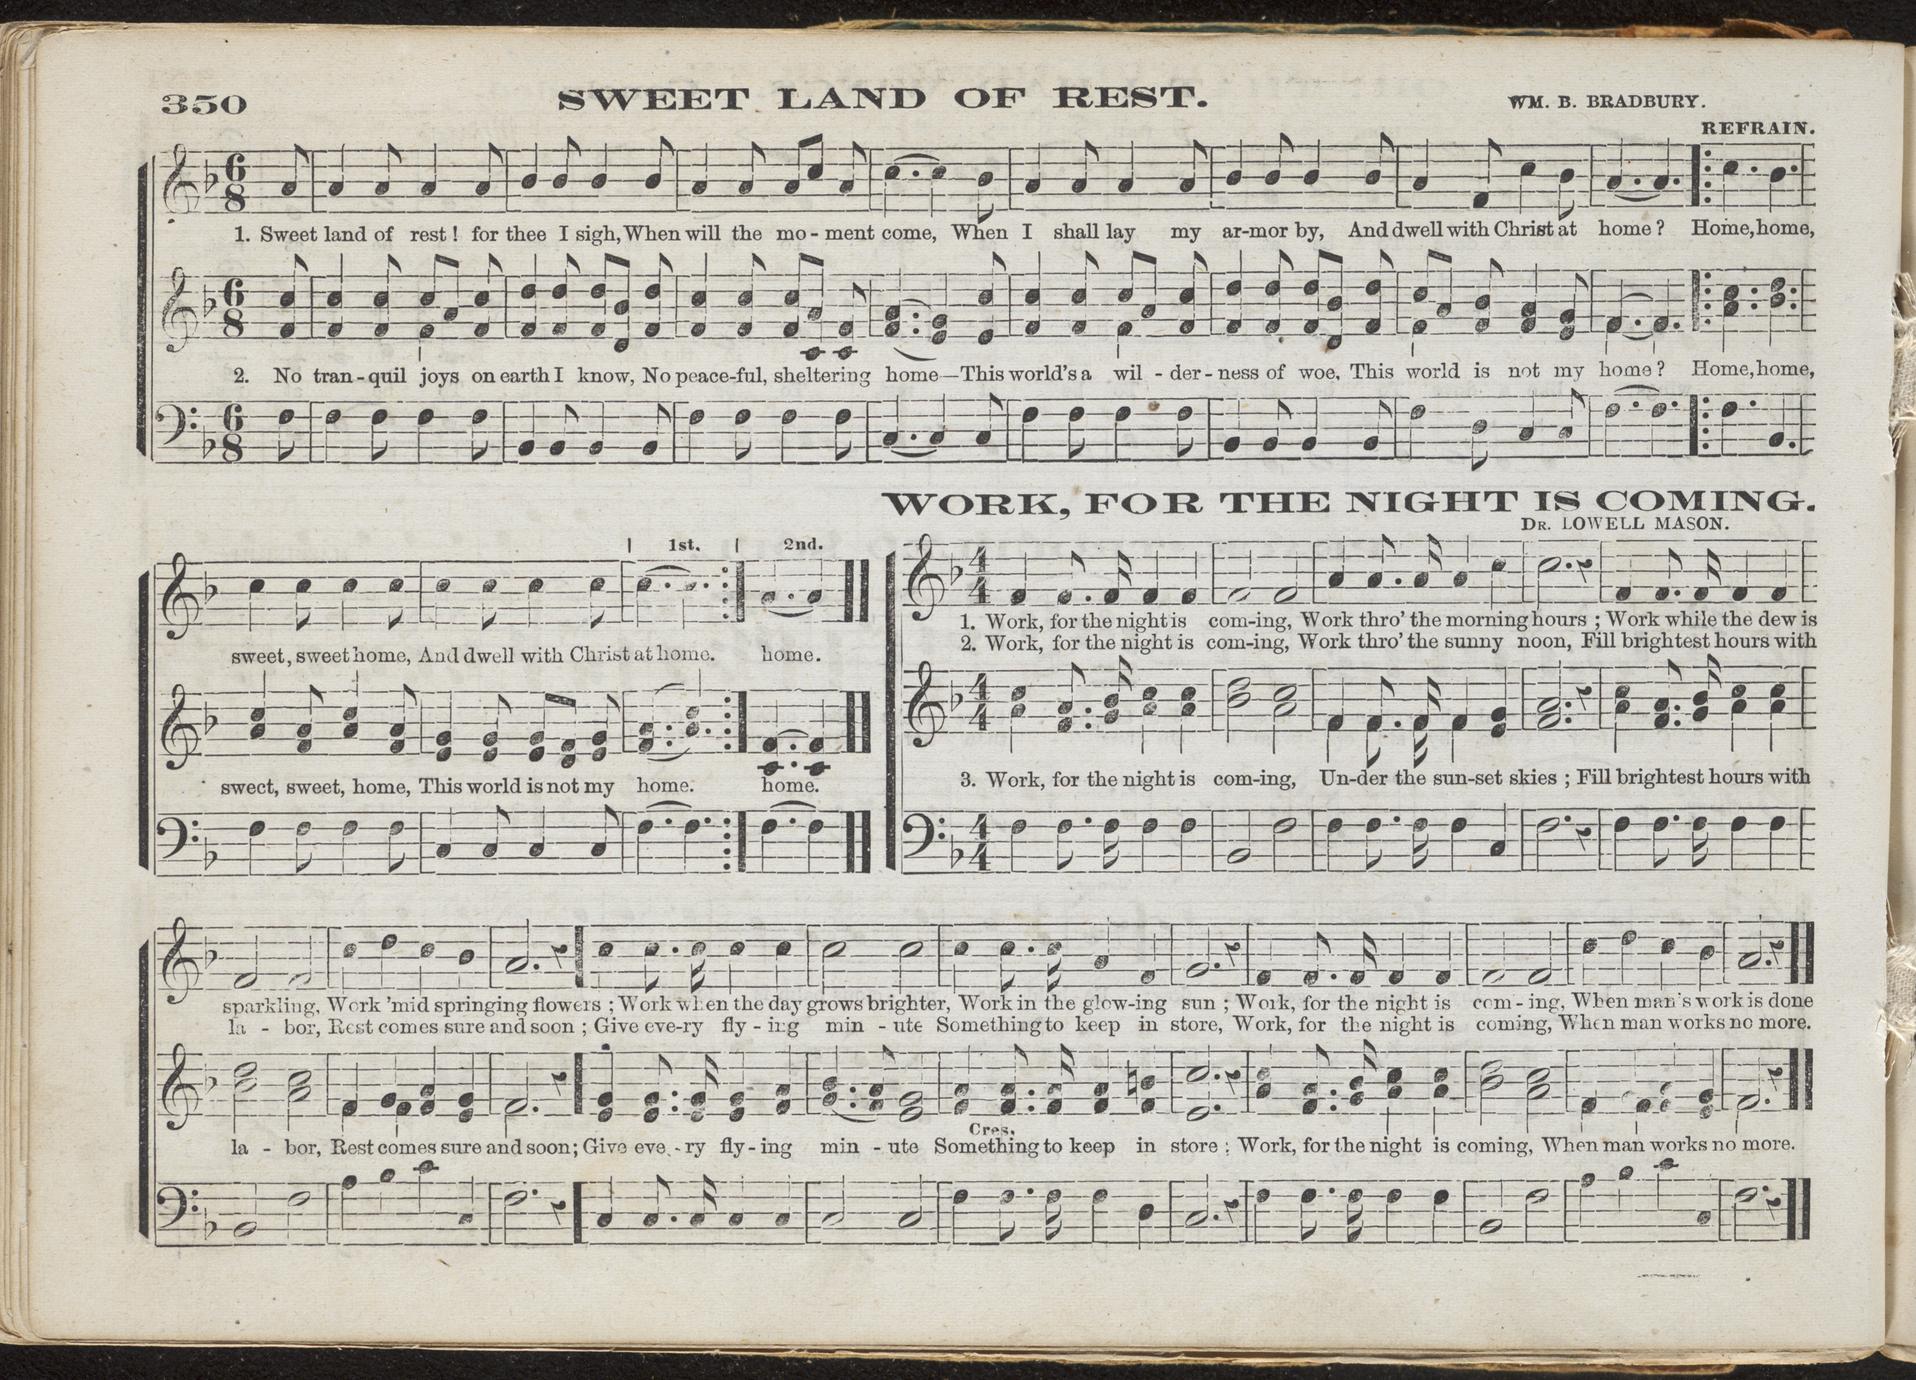 350
SWEET LAND OF REST.
WM. B. BRADBURY.
REFRAIN.
1. Sweet land of rest! for thee I sigh, When will the mo-ment come, When I shall lay my ar-mor by, And dwell with Christ at home? Home, home,
2. No tran-quil joys on earth I know, No peace-ful, sheltering home—This world's a wil-der-ness of woe. This world is not my home? Home, home,
WORK, FOR THE NIGHT IS COMING.
DR. LOWELL MASON.
1st. 2nd.
sweet, sweet home, And dwell with Christ at home. home.
swect, sweet, home, This world is not my home. home.
1. Work, for the night is com-ing, Work thro' the morning hours; Work while the dew is
2. Work, for the night is com-ing, Work thro' the sunny noon, Fill brightest hours with
3. Work, for the night is com-ing, Un-der the sun-set skies; Fill brightest hours with
sparkling, Work 'mid springing flowers; Work when the day grows brighter, Work in the glow-ing sun; Work, for the night is com-ing, When man's work is done
la-bor, Rest comes sure and soon; Give eve-ry fly-ing min-ute Something to keep in store, Work, for the night is coming, When man works no more.
Cres.
la-bor, Rest comes sure and soon; Give eve-ry fly-ing min-ute Something to keep in store; Work, for the night is coming, When man works no more.